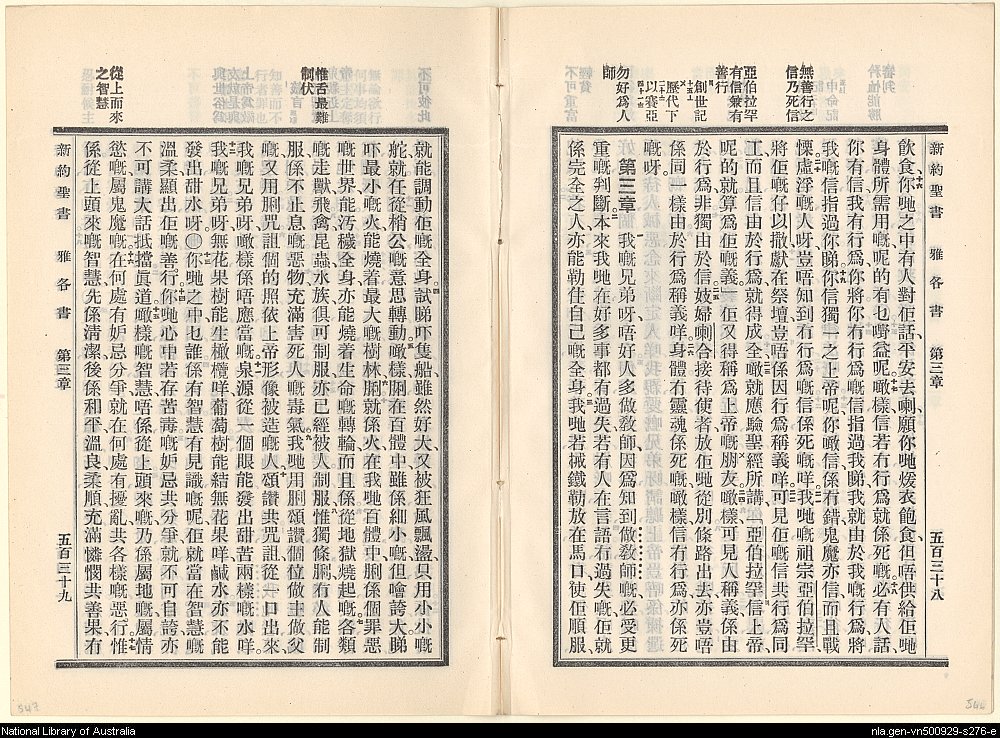 新約聖書 雅各書 第三章 五百三十八
飲食、你哋之中有人對佢話、平安去喇、願你哋煖衣飽食、但唔供給佢哋
身體所需用嘅、呢的有乜嘢益呢、噉樣信若冇行爲、就係死嘅、必有人話、
你有信、我有行爲、你將你冇行爲嘅信指過我睇、我就由於我嘅行爲、將
我嘅信指過你睇、你信獨一之上帝呢、你噉信係冇錯、鬼魔亦信而且戰
慄、虛浮嘅人呀、豈唔知到冇行爲嘅信係死嘅咩、我哋嘅祖宗亞伯拉罕
將佢嘅仔以撒獻在祭壇、豈唔係因行爲稱義咩、可見佢嘅信共行爲同
工、而且信由於行爲、就得成全噉就應驗聖經所講、亞伯拉罕信上帝、
呢的就算爲佢嘅義、佢又得稱爲上帝嘅朋友、噉樣可見人稱義係由
於行爲、非獨由於信、妓婦喇合接待使者、放佢哋從別條路出去、亦豈唔
係同一樣由於行爲稱義咩、身體冇靈魂係死嘅、噉樣信冇行爲亦係死
嘅呀。
第三章 我嘅兄弟呀、唔好人多做教師、因爲知到做教師嘅必受更
重嘅判斷、本來我哋在好多事都有過失、若有人在言語冇過失嘅、佢就
係完全之人、亦能勒住自己嘅全身、我哋若械鐵勒放在馬口、使佢順服、
無善行之
信乃死信
亞伯拉罕
有信兼有
善行
創世記
歷代下
以賽亞
勿好爲人
師
新約聖書 雅各書 第三章 五百三十九
就能調動佢嘅全身、試睇吓隻船、雖然好大、又被狂風飄盪、只用小小嘅
舵、就任從梢公嘅意思轉動、噉樣脷在百體中雖係細小嘅、但噲誇大、睇
吓最小嘅火、能燒着最大嘅樹林、脷就係火、在我哋百體中、脷係個罪惡
嘅世界、能污穢全身、亦能燒着生命嘅轉輪、而且係從地獄燒起嘅、各類
嘅走獸飛禽昆蟲水族、俱可制服、亦已經被人制服、惟獨條脷、冇人能制
服、係不止息嘅惡物、充滿害死人嘅毒氣、我哋用脷頌讚個位做主做父
嘅、又用脷咒詛個的照依上帝形像被造嘅人、頌讚共咒詛、從一口出來、
我嘅兄弟呀、噉樣係唔應當嘅、泉源從一個眼、能發出甜苦兩樣嘅水咩、
我嘅兄弟呀、無花果樹能生橄欖咩、葡萄樹能結無花果咩、鹹水亦不能
發出甜水呀。〇你哋之中乜誰係有智慧有見識嘅呢、佢就當在智慧嘅
溫柔、顯出佢嘅善行、你哋心中若存苦毒嘅妒忌共分爭、就不可自誇、亦
不可講大話抵擋眞道、噉樣嘅智慧、唔係從上頭來嘅、乃係屬地嘅、屬情
慾嘅、屬鬼魔嘅、在何處有妒忌分爭、就在何處有擾亂共各樣嘅惡行、惟
係從上頭來嘅智慧、先係淸潔、後係和平、溫良柔順、充滿憐憫共善果、冇
惟舌最難
制伏
從上而來
之智慧
547
National Library of Australia
nla.gen-vn500929-s276-e